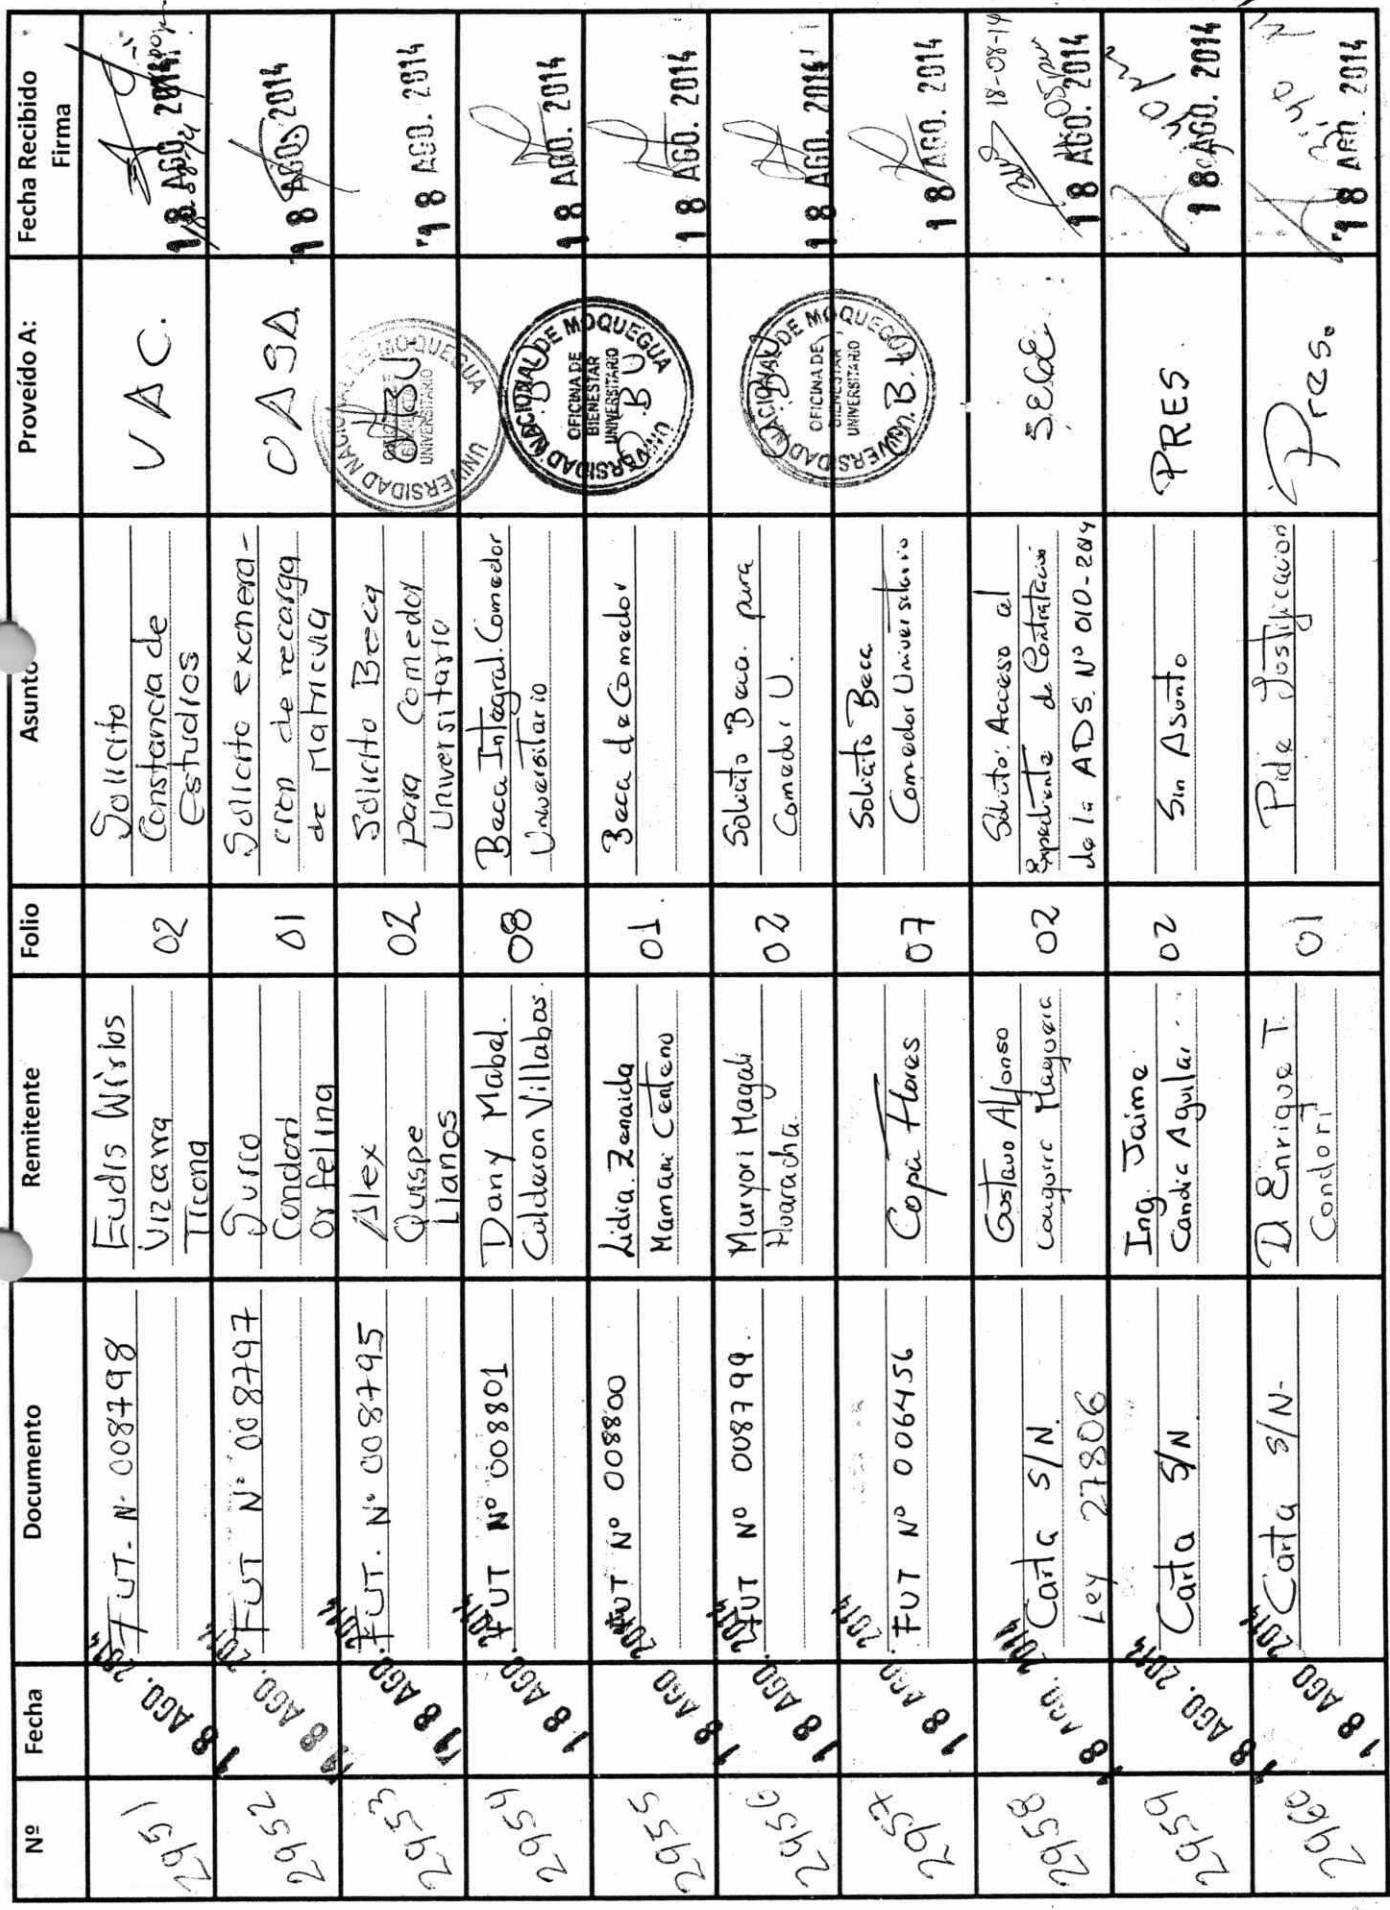 Nº Fecha Documento Remitente Folio Asunto Proveído A: Fecha Recibido Firma
2951 18 AGO. 2014 FUT. N· 008798 Eudis Wirlos Vizcarra Ticona 02 Solicito Constancia de Estudios VAC. 18 AGO. 2014
2952 18 AGO. 2014 FUT N· 008797 Surco Condori Orfelina 01 Solicito exonera- cion de recarga de Matricula OASA 18 AGO. 2014
2953 18 AGO. 2014 FUT. N· 008795 Alex Quispe Llanos 02 Solicito Beca para Comedor Universitario OBU 18 AGO. 2014
UNIVERSIDAD NACIONAL DE MOQUEGUA
UNIVERSITARIO
2954 18 AGO. 2014 FUT Nº 008801 Dany Mabel. Calderon Villabos. 08 Beca Integral. Comedor Universitario O.B.U 18 AGO. 2014
UNIVERSIDAD NACIONAL DE MOQUEGUA
OFICINA DE
BIENESTAR
UNIVERSITARIO
2955 18 AGO 2014 FUT Nº 008800 Lidia. Zenaida Mamani Centeno 01. Beca de Comedor O.B U 18 AGO. 2014
2956 18 AGO. 2014 FUT Nº 008799. Maryori Magali Huaracha. 02 Solicito Beca. para Comedor U. O.B.U 18 AGO. 2014
UNIVERSIDAD NACIONAL DE MOQUEGUA
OFICINA DE
BIENESTAR
UNIVERSITARIO
2957 18 AGO. 2014 FUT Nº 006456 Copa Flores 07 Solicito Beca Comedor Universitario O.B.U 18 AGO. 2014
2958 18 AGO. 2014 Carta S/N. Ley 27806 Gustavo Alfonso 02 Solicito: Acceso al Expediente de Contratacion de la ADS. Nº 010-2014 SEGE. 18-08-14 18 AGO. 2014
2959 18 AGO. 2014 Carta S/N. Ing. Jaime Candia Aguilar. 02 Sin Asunto PRES. 18 AGO. 2014
2960 18 AGO 2014 Carta S/N- D. Enrique T. Condori 01 Pide Justificacion Pres. 18 AGO. 2014